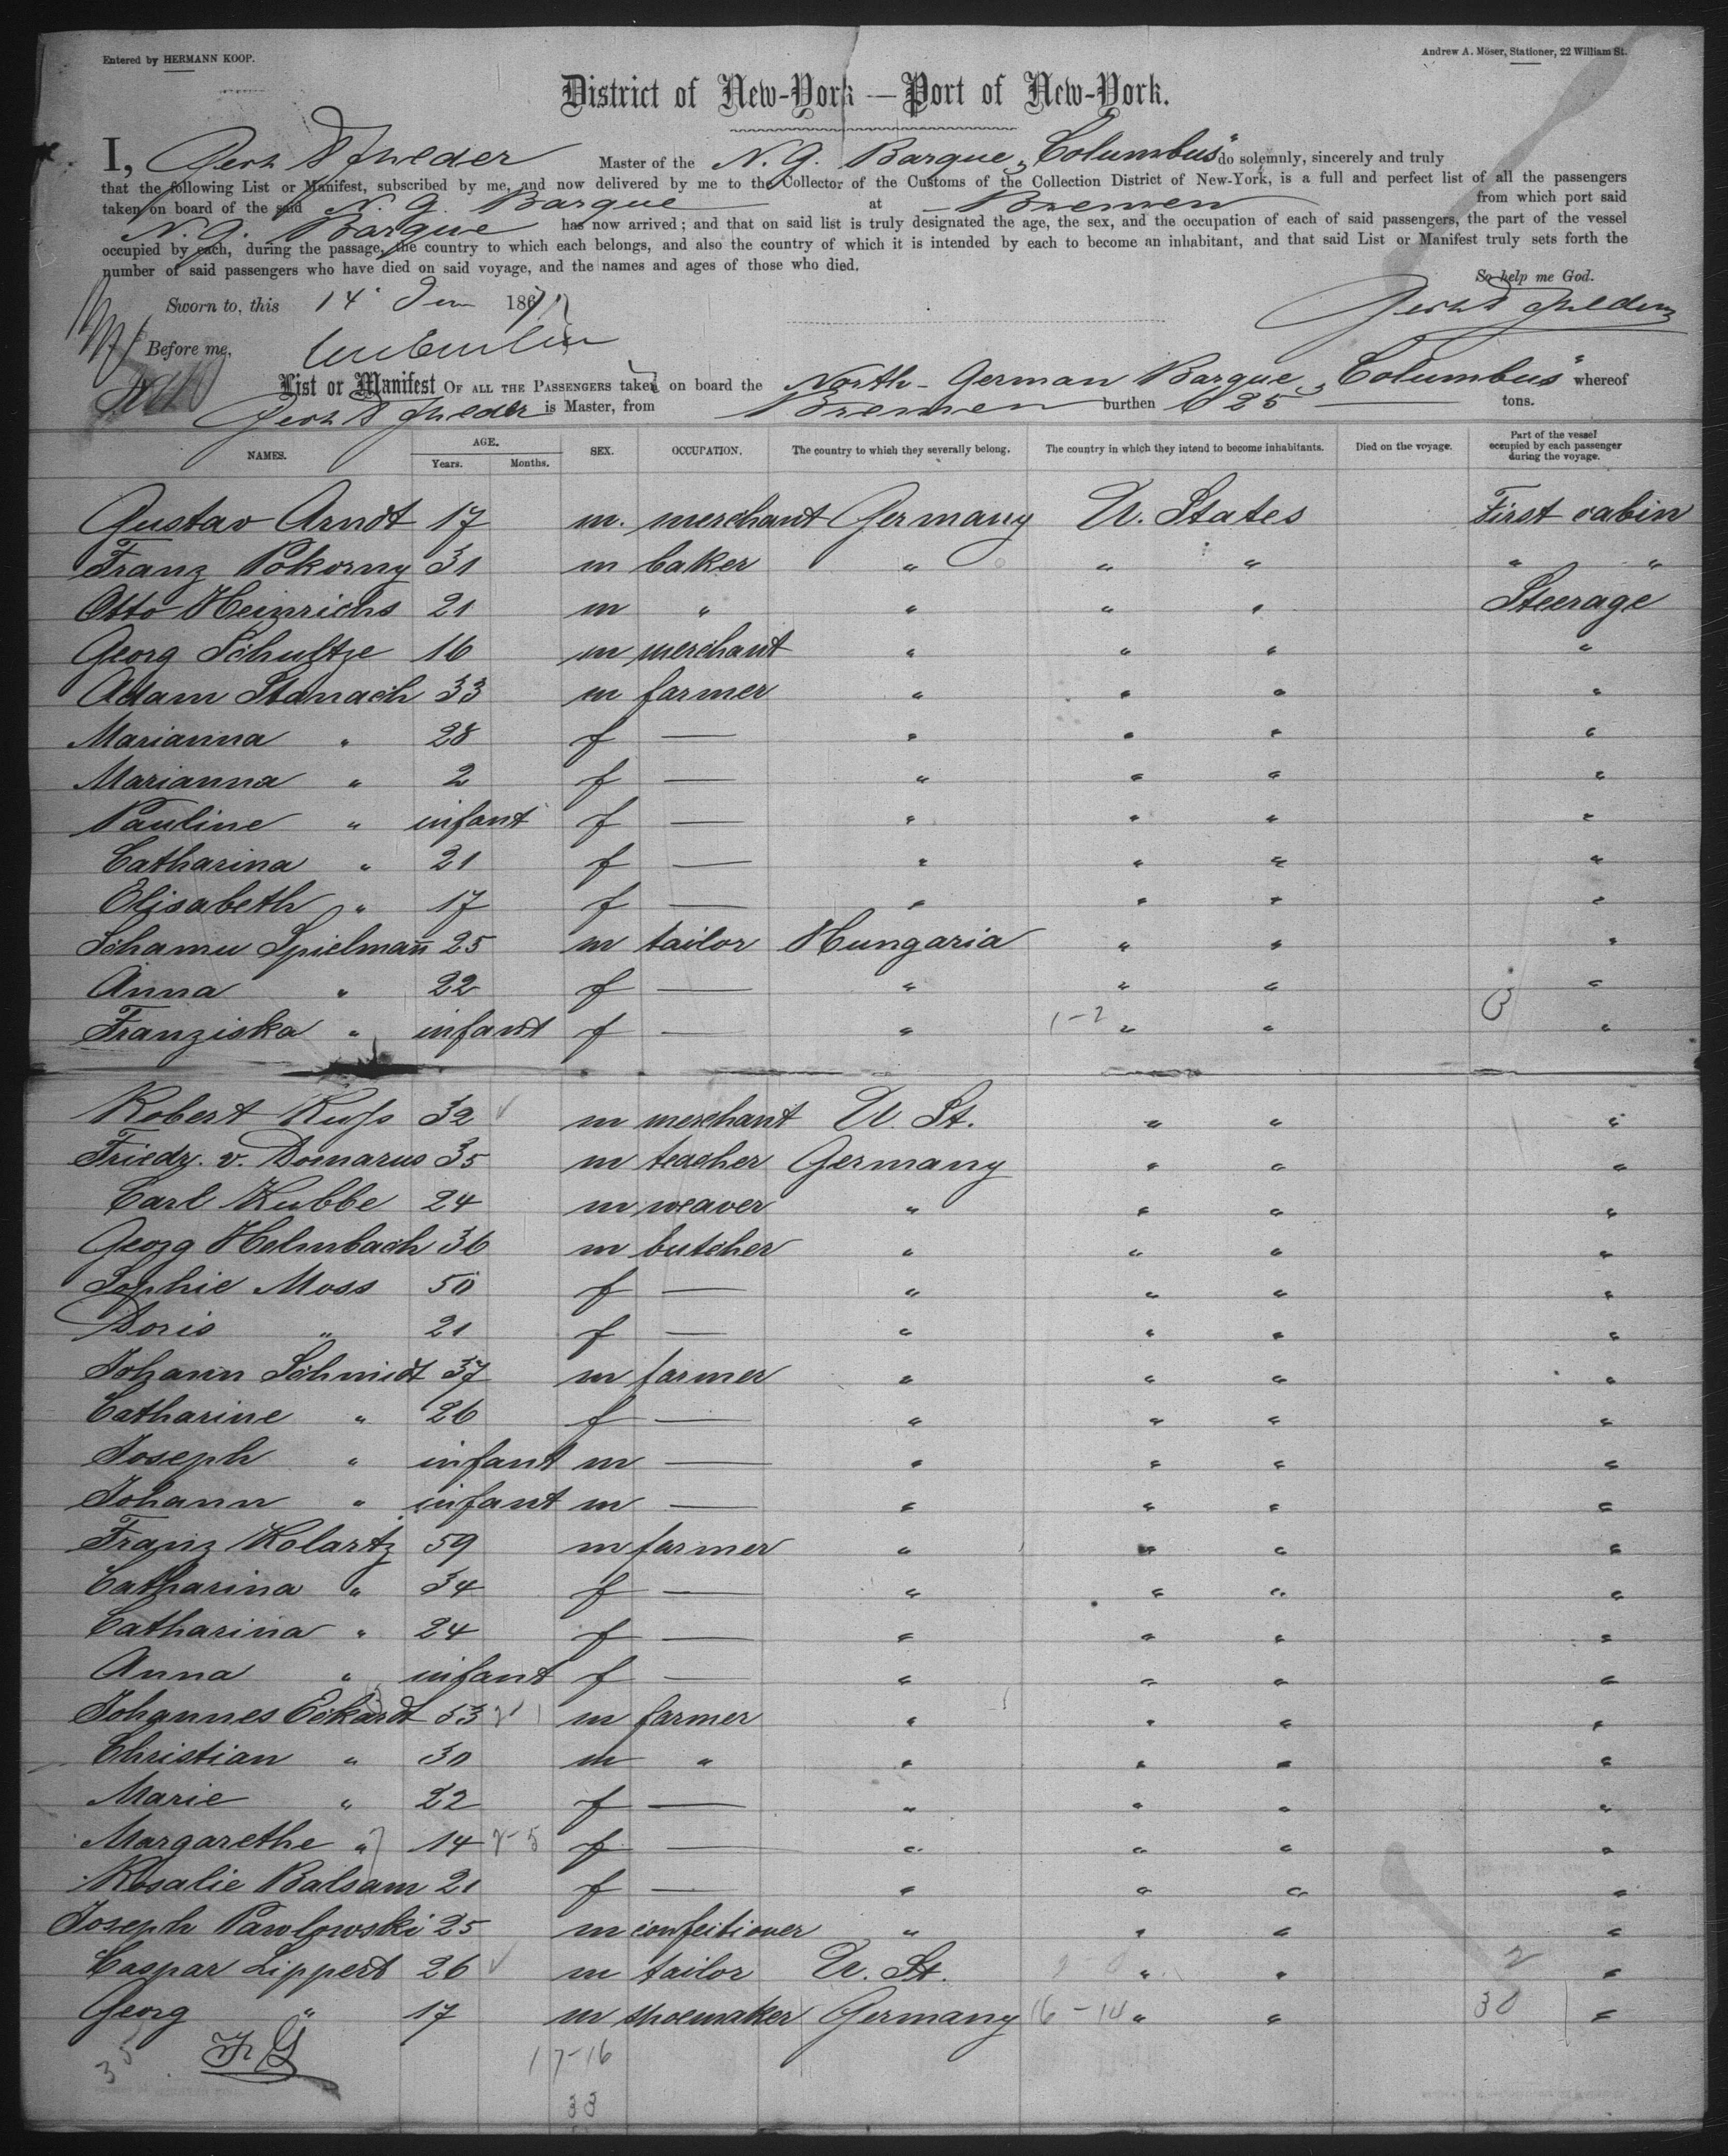 Entered by HERMANN KOOP.
Andrew A. Möser, Stationer, 22 William St.
District of New-York — Port of New-York.
I, Master of the N. G. Barque „Columbus" do solemnly, sincerely and truly
that the following List or Manifest, subscribed by me, and now delivered by me to the Collector of the Customs of the Collection District of New-York, is a full and perfect list of all the passengers
taken on board of the said N. G. Barque at Bremen from which port said
N. G. Barque has now arrived; and that on said list is truly designated the age, the sex, and the occupation of each of said passengers, the part of the vessel
occupied by each, during the passage, the country to which each belongs, and also the country of which it is intended by each to become an inhabitant, and that said List or Manifest truly sets forth the
number of said passengers who have died on said voyage, and the names and ages of those who died.
So help me God.
Sworn to, this 14 186
Before me,
List or Manifest OF ALL THE PASSENGERS taken on board the North-German Barque „Columbus" whereof
is Master, from Bremen burthen 625 tons.
NAMES. AGE. Years. Months. SEX. OCCUPATION. The country to which they severally belong. The country in which they intend to become inhabitants. Died on the voyage. Part of the vessel occupied by each passenger during the voyage.
Gustav Arndt 17 m. merchant Germany U. States First cabin
Franz Pokorny 31 m baker " " " " "
Otto Heinrichs 21 m " " " " Steerage
Georg Schultze 16 m merchant " " " "
Adam Stanach 33 m farmer " " " "
Marianna " 28 f — " " " "
Marianna " 2 f — " " " "
Pauline " infant f — " " " "
Catharina " 21 f — " " " "
Elisabeth " 17 f — " " " "
Schamu Spielmañ 25 m tailor Hungaria " " "
Anna " 22 f — " " " "
Franziska " infant f — " 1-2 " " "
Robert Kuſs 32 m merchant U. St. " " "
Friedr. v. Domarus 35 m teacher Germany " " "
Carl Kubbe 24 m weaver " " " "
Georg Helmbach 36 m butcher " " " "
Sophie Moss 50 f — " " " "
Doris " 21 f — " " " "
Johann Schmidt 37 m farmer " " " "
Catharine " 26 f — " " " "
Joseph " infant m — " " " "
Johann " infant m — " " " "
Franz Kolartz 59 m farmer " " " "
Catharina " 34 f — " " " "
Catharina " 24 f — " " " "
Anna " infant f — " " " "
Johannes Eckardt 53 m farmer " " " "
Christian " 30 m " " " " "
Marie " 22 f — " " " "
Margarethe " 14 f — " " " "
Rosalie Balsam 21 f — " " " "
Joseph Pawlowski 25 m confectioner " " " "
Caspar Lippert 26 m tailor U. St. " " 2 "
Georg " 17 m shoemaker Germany 16-14 " " 30 "
35 17-16
33